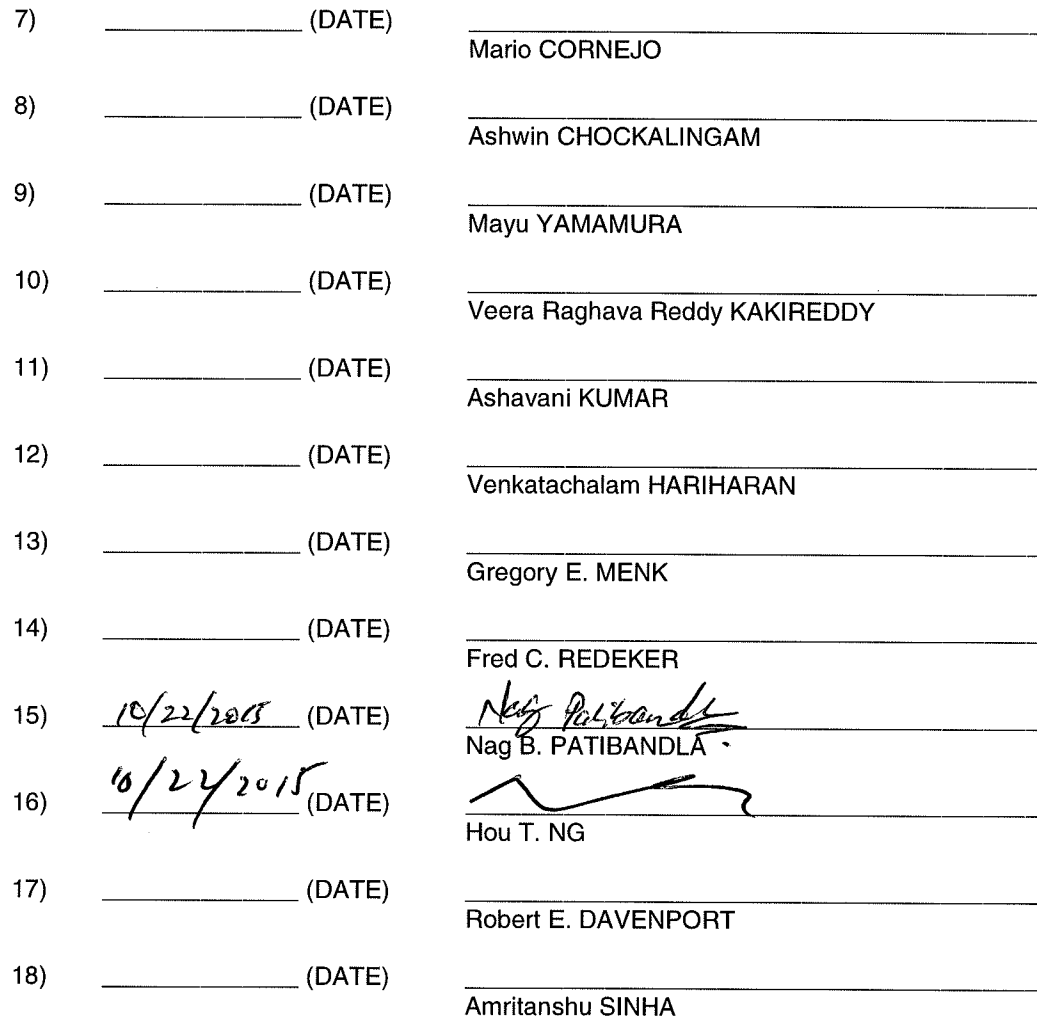 7) (DATE)
Mario CORNEJO
8) (DATE)
Ashwin CHOCKALINGAM
9) (DATE)
Mayu YAMAMURA
10) (DATE)
Veera Raghava Reddy KAKIREDDY
11) (DATE)
Ashavani KUMAR
12) (DATE)
Venkatachalam HARIHARAN
13) (DATE)
Gregory E. MENK
14) (DATE)
Fred C. REDEKER
15) 10/22/2015 (DATE) Nag Patibandla
Nag B. PATIBANDLA
16) 10/22/2015 (DATE)
Hou T. NG
17) (DATE)
Robert E. DAVENPORT
18) (DATE)
Amritanshu SINHA